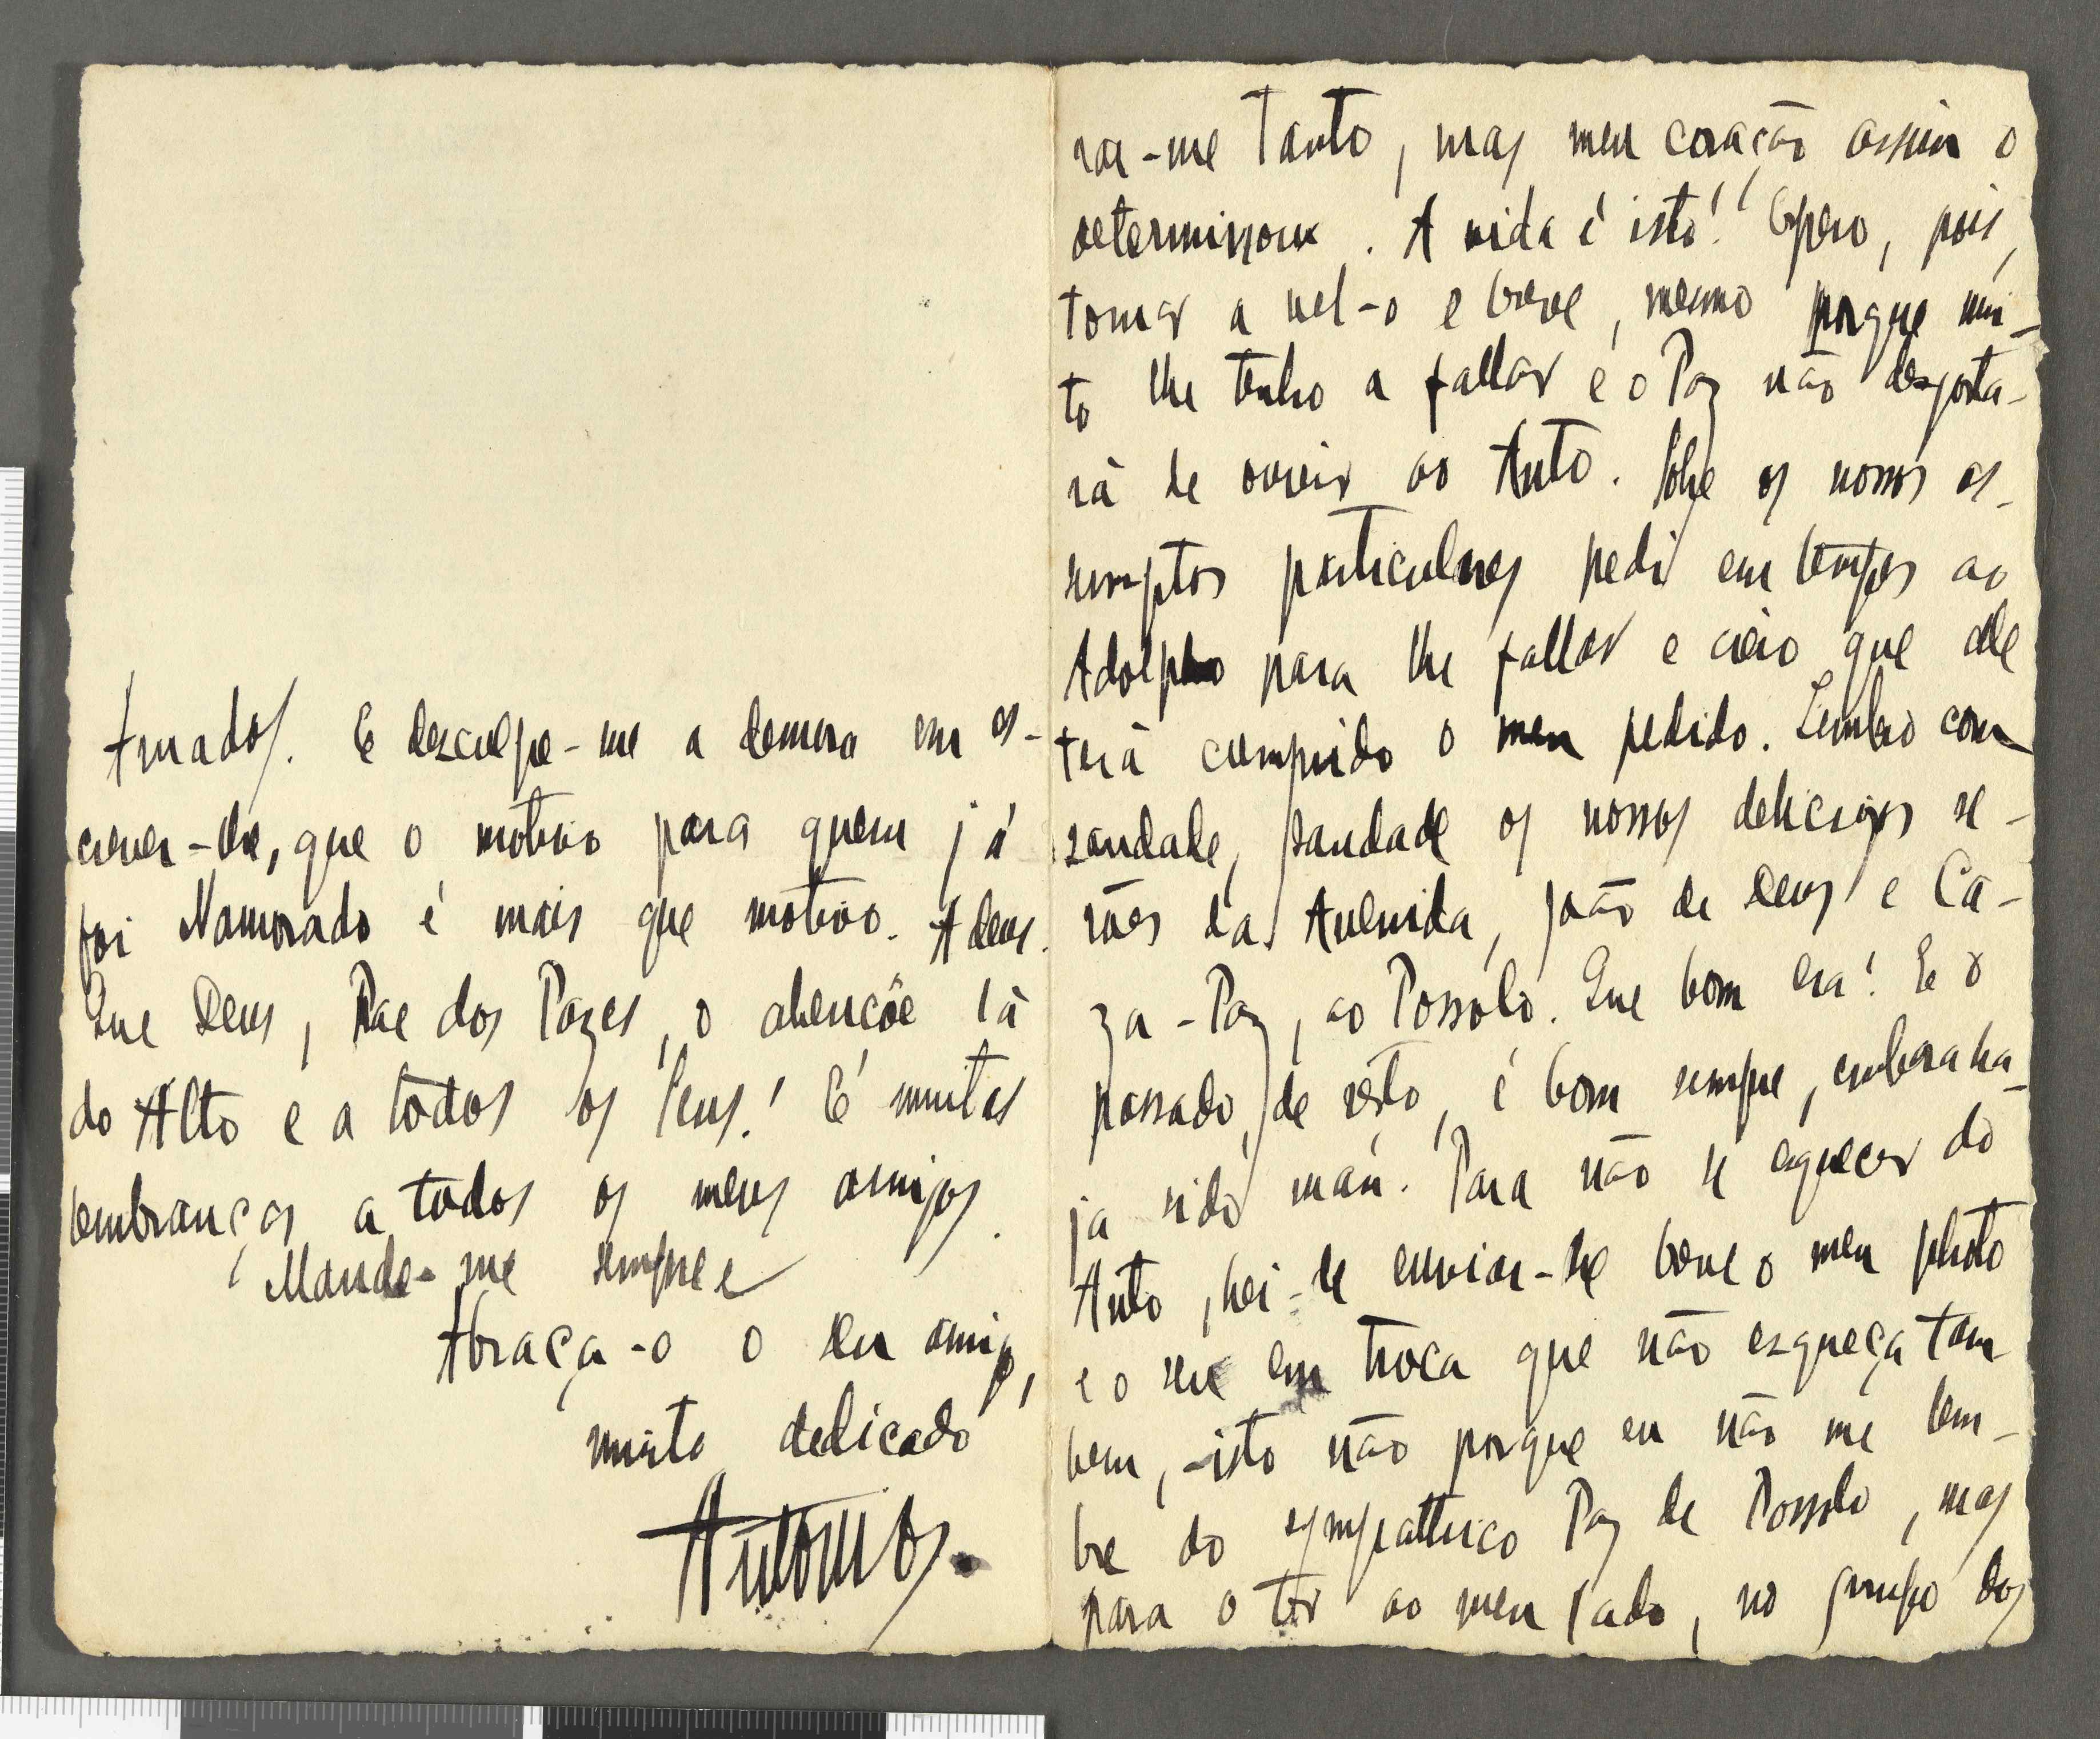 rar-me tanto, mas meu coração assim o
determinou. A vida é isto! Espero, pois,
tornar a vel-o e breve, mesmo porque mui-
to lhe tenho a fallar e o Paz não desgosta-
rá de ouvir ao Anto. Sobre os nossos as-
sumptos particulares pedi em tempos ao
Adolpho para lhe fallar e creio que elle
terá cumprido o meu pedido. Lembro com
saudade, saudade os nossos deliciosos se-
rões da Avenida, João de Deus e Ca-
za-Paz, ao Possolo. Que bom era! E o
passado, de resto, é bom sempre, embora ha-
ja sido máu. Para não se esquecer do
Anto, hei-de enviar-lhe breve o meu photo
e o seu em troca que não esqueça tam-
bem, -isto não porque eu não me lem-
bre do sympathico Paz de Possolo, mas
para o ter ao meu lado, no grupo dos
Amados. E desculpe-me a demora em es-
crever-lhe, que o motivo para quem já
foi Namorado é mais que motivo. Adeus.
Que Deus, Pae dos Pazes, o abençõe lá
do Alto e a todos os Seus! E muitas
lembranças a todos os meus amigos.
Mande-me sempre e
Abraça-o o seu amigo,
muito dedicado
Antonio.